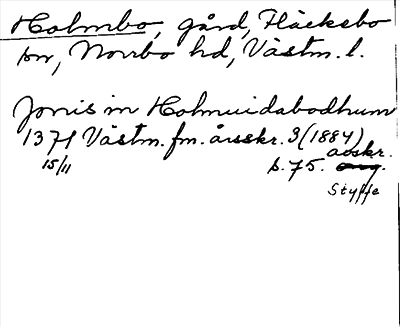 Holmbo, gård, Fläckebo
sn, Norrbo hd, Västm. l.
Jonis in Holmuidabodhum
1371 Västm. fm. årsskr. 3 (1884)
15/11 s. 75. avskr.
Styffe